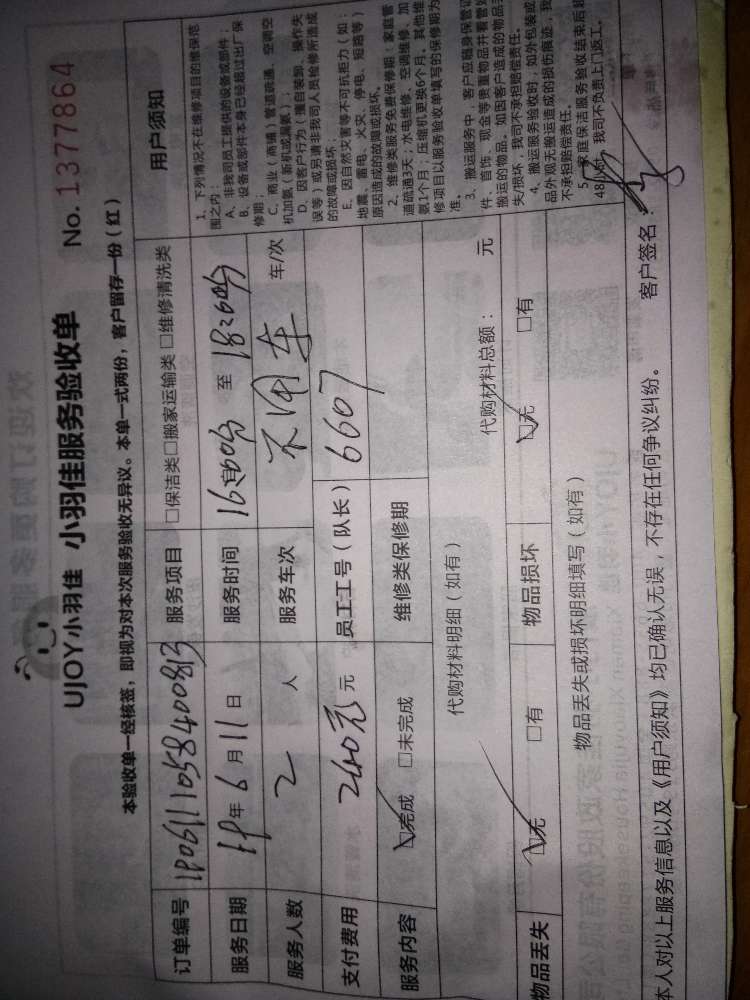 UJOY小羽佳 小羽佳服务验收单 No. 1377864
本验收单一经核签，即视为对本次服务验收无异议。本单一式两份，客户留存一份（红）
订单编号 1806111058400813 服务项目 □保洁类□搬家运输类 □维修清洗类
服务日期 年 6 月 11 日 服务时间 至
服务人数 2 人 服务车次 不用车 车/次
支付费用 240元 元 员工工号（队长） 6607
服务内容 □完成 □未完成 维修类保修期
代购材料明细（如有） 代购材料总额： 元
物品丢失 □无 □有 物品损坏 □无 □有
物品丢失或损坏明细填写（如有）
本人对以上服务信息以及《用户须知》均已确认无误，不存在任何争议纠纷。 客户签名：
用户须知
1、下列情况不在维修项目的维保范
围之内：
A、非我司员工提供的设备或部件；
B、设备或部件本身已经超过出厂保
修期；
C、商业（商铺）管道疏通、空调空
机加氨（新机或漏氨）；
D、因客户行为（擅自装卸、操作失
误等）或另请非我司人员检修所造成
的故障或损坏；
E、因自然灾害等不可抗拒力（如：
地震、雷电、火灾、停电、短路等）
原因造成的故障或损坏。
2、维修类服务免费保修期：家庭管
道疏通3天；水电维修、空调维修、加
氨1个月；压缩机更换6个月。其他维
修项目以服务验收单填写的保修期为
准。
3、搬运服务中，客户应随身保管证
件、首饰、现金等贵重物品并看管好
搬运的物品。如因客户造成的物品丢
失/损坏，我司不承担赔偿责任。
4、搬运服务验收时，如外包装或
品外观无搬运造成的损伤痕迹，我
不承担赔偿责任。
5、家庭保洁服务验收结束后超
48小时，我司不负责上门返工。